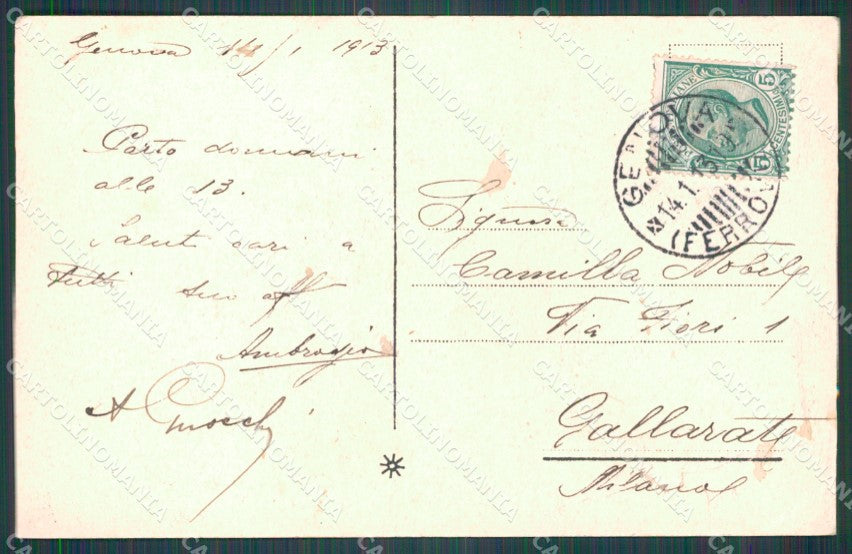 Genova 14/1 1913
Parto domani
alle 13.
Saluti cari a
tutti suo aff
Ambrogio
A
Signora
Camilla Nobile
Via Fiori 1
Gallarate
Milano
GENOVA
14.1.13
(FERROV
5 CENTESIMI 5
CARTOLINOMANIA